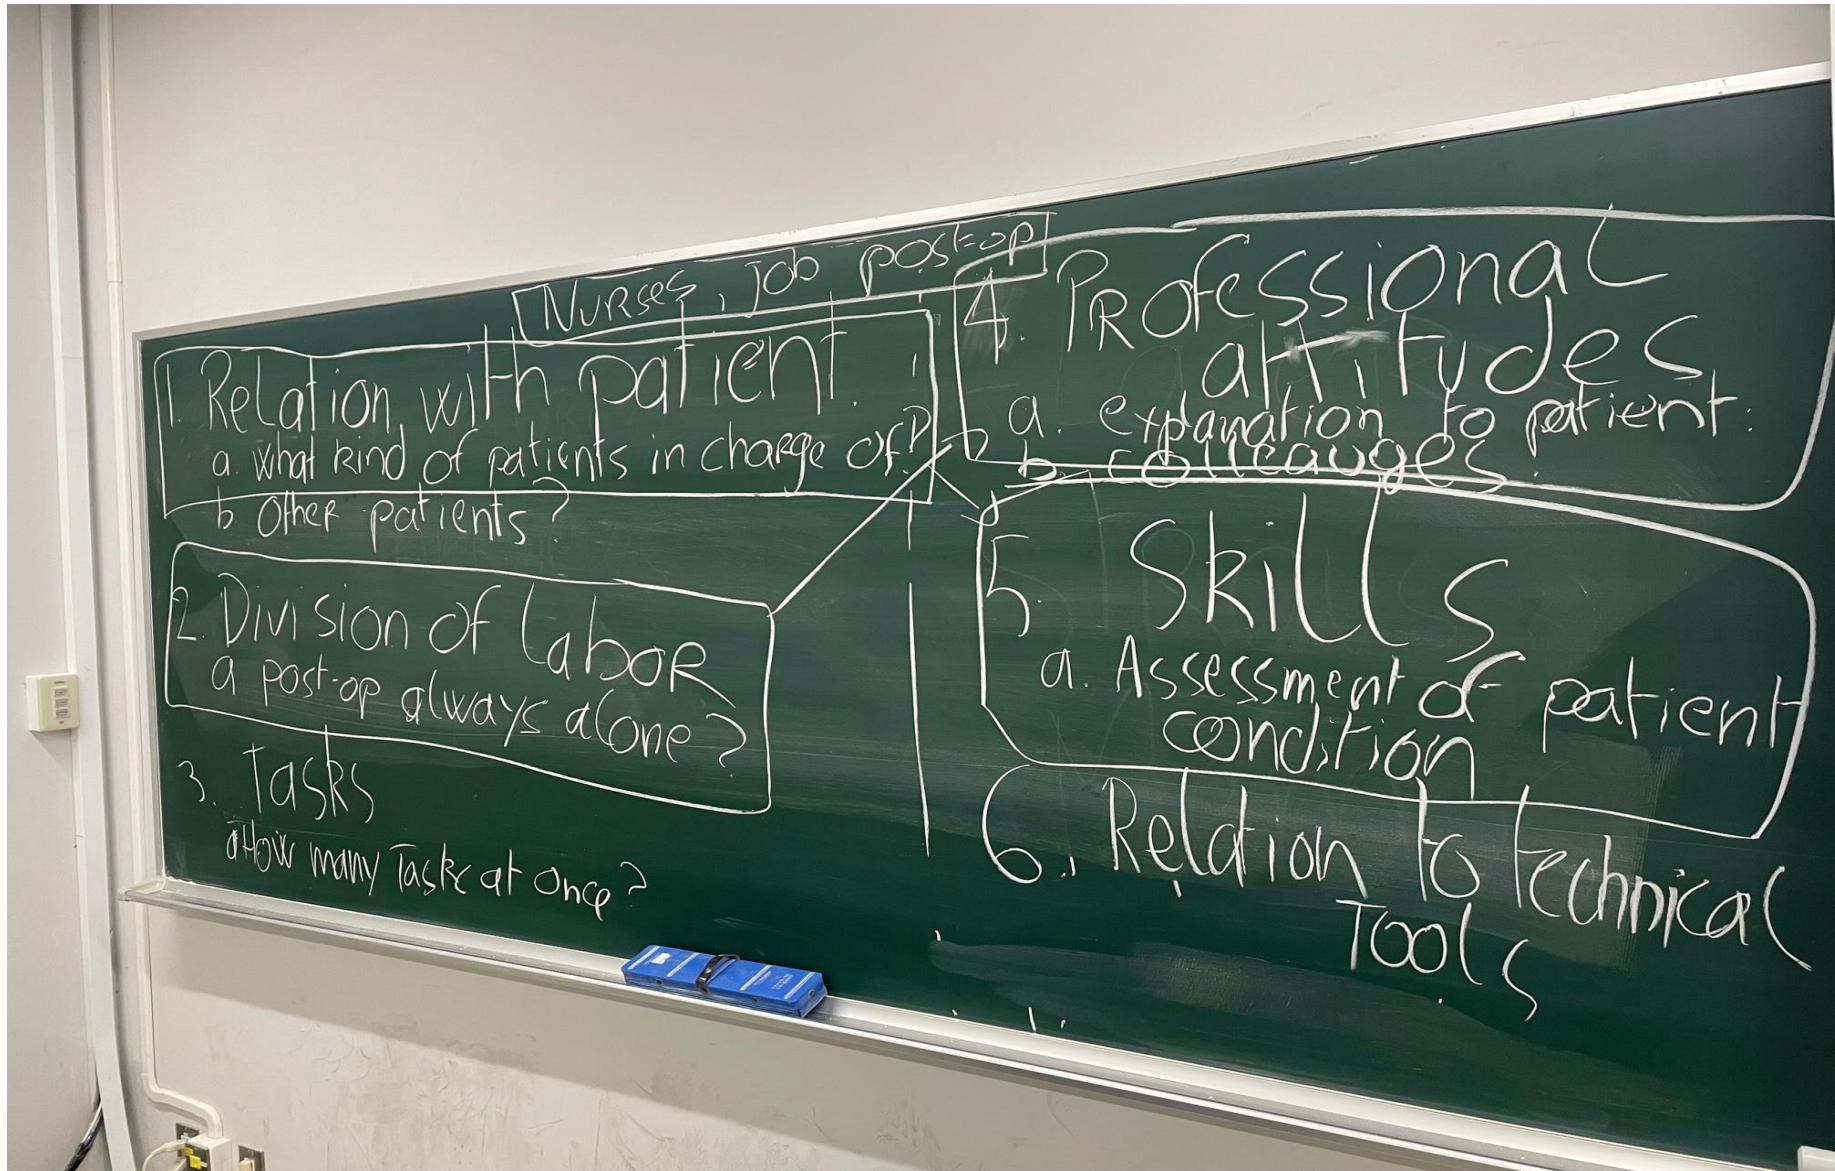 Nurses, job post-op
1. Relation with patient.
a. what kind of patients in charge of?
b Other patients?
2. Division of Labor
a post-op always alone?
3. Tasks
a How many Tasks at once?
4. Professional
attitudes
a. explanation to patient:
b. colleauges
5. Skills
a. Assessment of patient
condition
6. Relation to technical
Tools